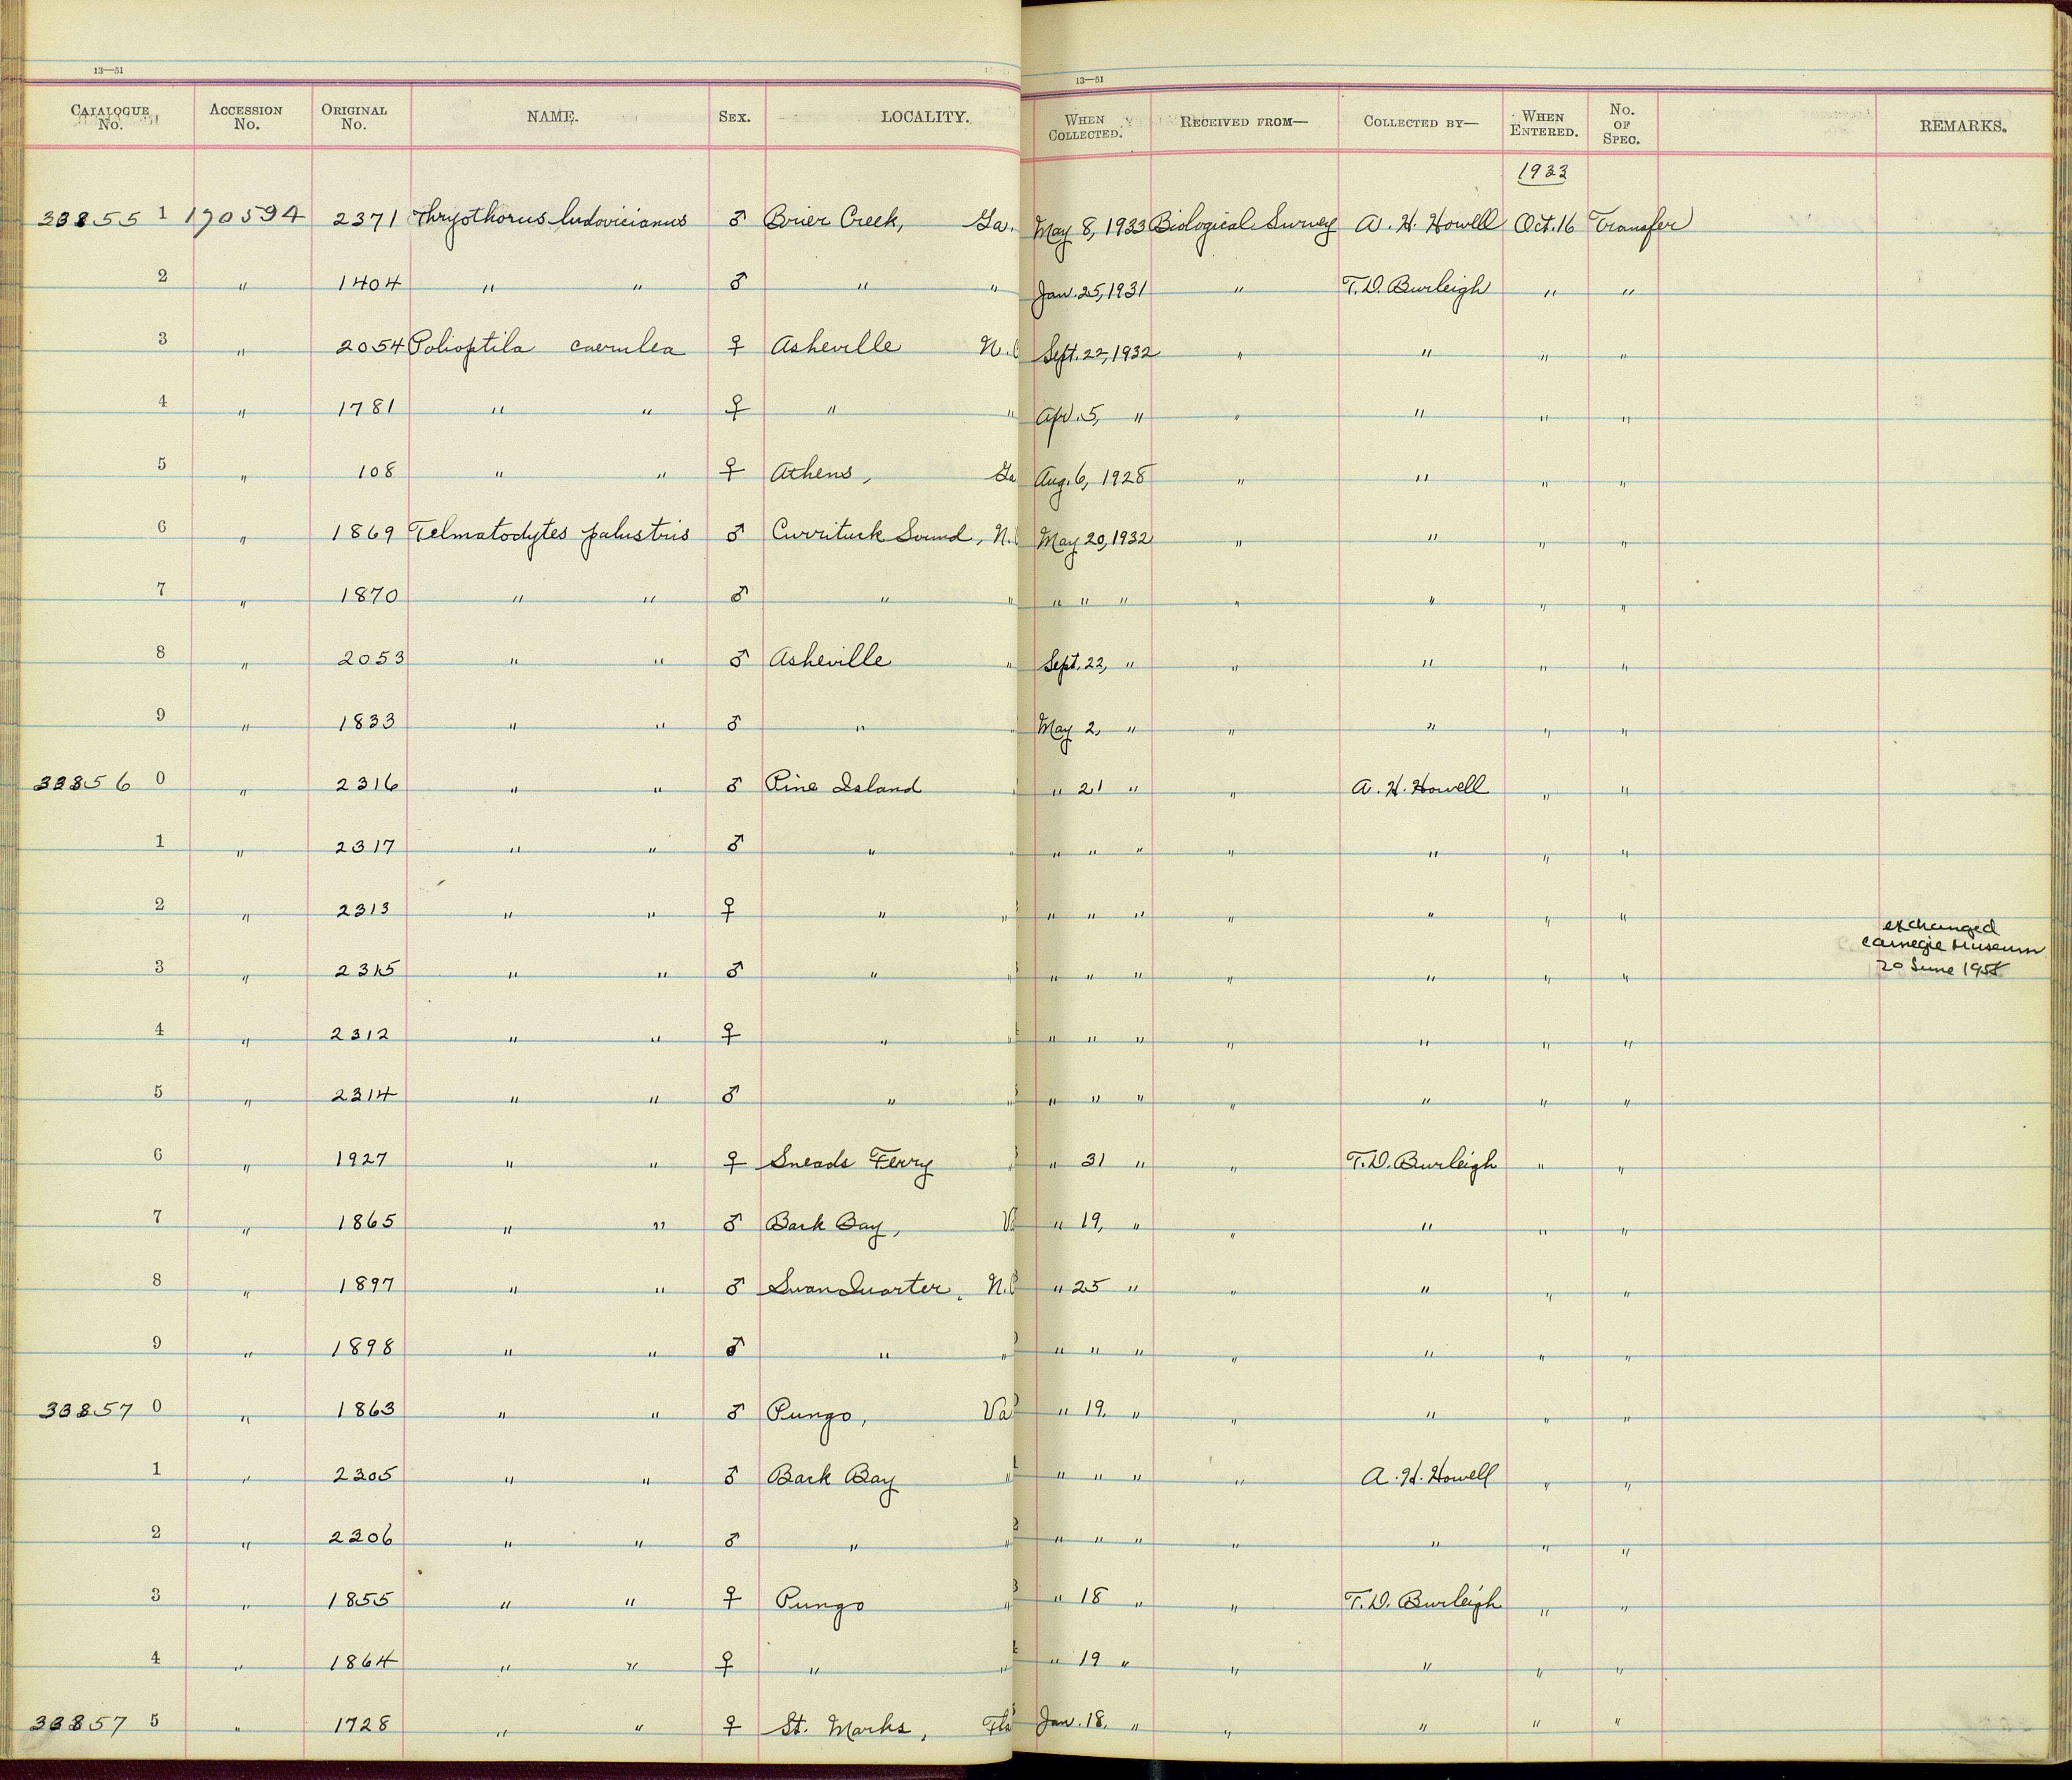 13—51 13—51
CATALOGUE No. ACCESSION No. ORIGINAL No. NAME. SEX. LOCALITY. WHEN COLLECTED. RECEIVED FROM— COLLECTED BY— WHEN ENTERED. No. OF SPEC. REMARKS.
1933
33855 1 190594 2371 Thryothorus ludovicianus ♂ Brier Creek, Ga. May 8, 1933 Biological Survey A. H. Howell Oct. 16 Transfer
2 " 1404 " " ♂ " " Jan. 25, 1931 " T. D. Burleigh " "
3 " 2054 Polioptila caerulea ♀ Asheville N.C Sept. 22, 1932 " " " "
4 " 1781 " " ♀ " " Apr. 5, " " " " "
5 " 108 " " ♀ Athens, Ga Aug. 6, 1928 " " " "
6 " 1869 Telmatodytes palustris ♂ Currituck Sound, N.C May 20, 1932 " " " "
7 " 1870 " " ♂ " " " " " " " " "
8 " 2053 " " ♂ Asheville " Sept. 22, " " " " "
9 " 1833 " " ♂ " " May 2, " " " " "
33856 0 " 2316 " " ♂ Pine Island " " 21 " " A. H. Howell " "
1 " 2317 " " ♂ " " " " " " " " "
2 " 2313 " " ♀ " " " " " " " " "
exchanged
Carnegie Museum
20 June 1958
3 " 2315 " " ♂ " " " " " " " " "
4 " 2312 " " ♀ " " " " " " " " "
5 " 2314 " " ♂ " " " " " " " " "
6 " 1927 " " ♀ Sneads Ferry " " 31 " " T. D. Burleigh " "
7 " 1865 " " ♂ Back Bay, V " 19, " " " " "
8 " 1897 " " ♂ Swan Quarter, N.C " 25 " " " " "
9 " 1898 " " ♂ " " " " " " " " "
33857 0 " 1863 " " ♂ Pungo, Va " 19, " " " " "
1 " 2305 " " ♂ Back Bay " " " " " A. H. Howell " "
2 " 2306 " " ♂ " " " " " " " " "
3 " 1855 " " ♀ Pungo " " 18 " " T. D. Burleigh " "
4 " 1864 " " ♀ " " " 19 " " " " "
33857 5 " 1728 " " ♀ St. Marks, Fla Jan. 18, " " " " "